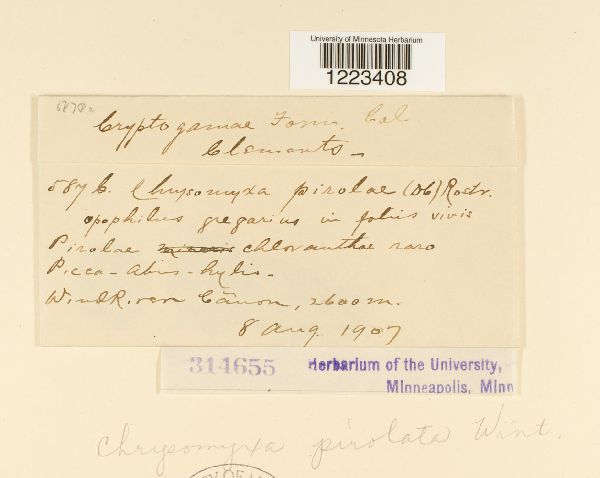 University of Minnesota Herbarium
1223408
Cryptogamae Form. Col.
Clements -
587 b. Chrysomyxa pirolae (Db) Rostr.
opophilus gregarius in foliis vivis
Pirolae minoris chloranthae raro
Picea-Abies-hylis-
Wind River Cañon, 2600 m.
8 Aug. 1907
314655 Herbarium of the University,
Minneapolis, Minn
Chrysomyxa pirolata Wint.